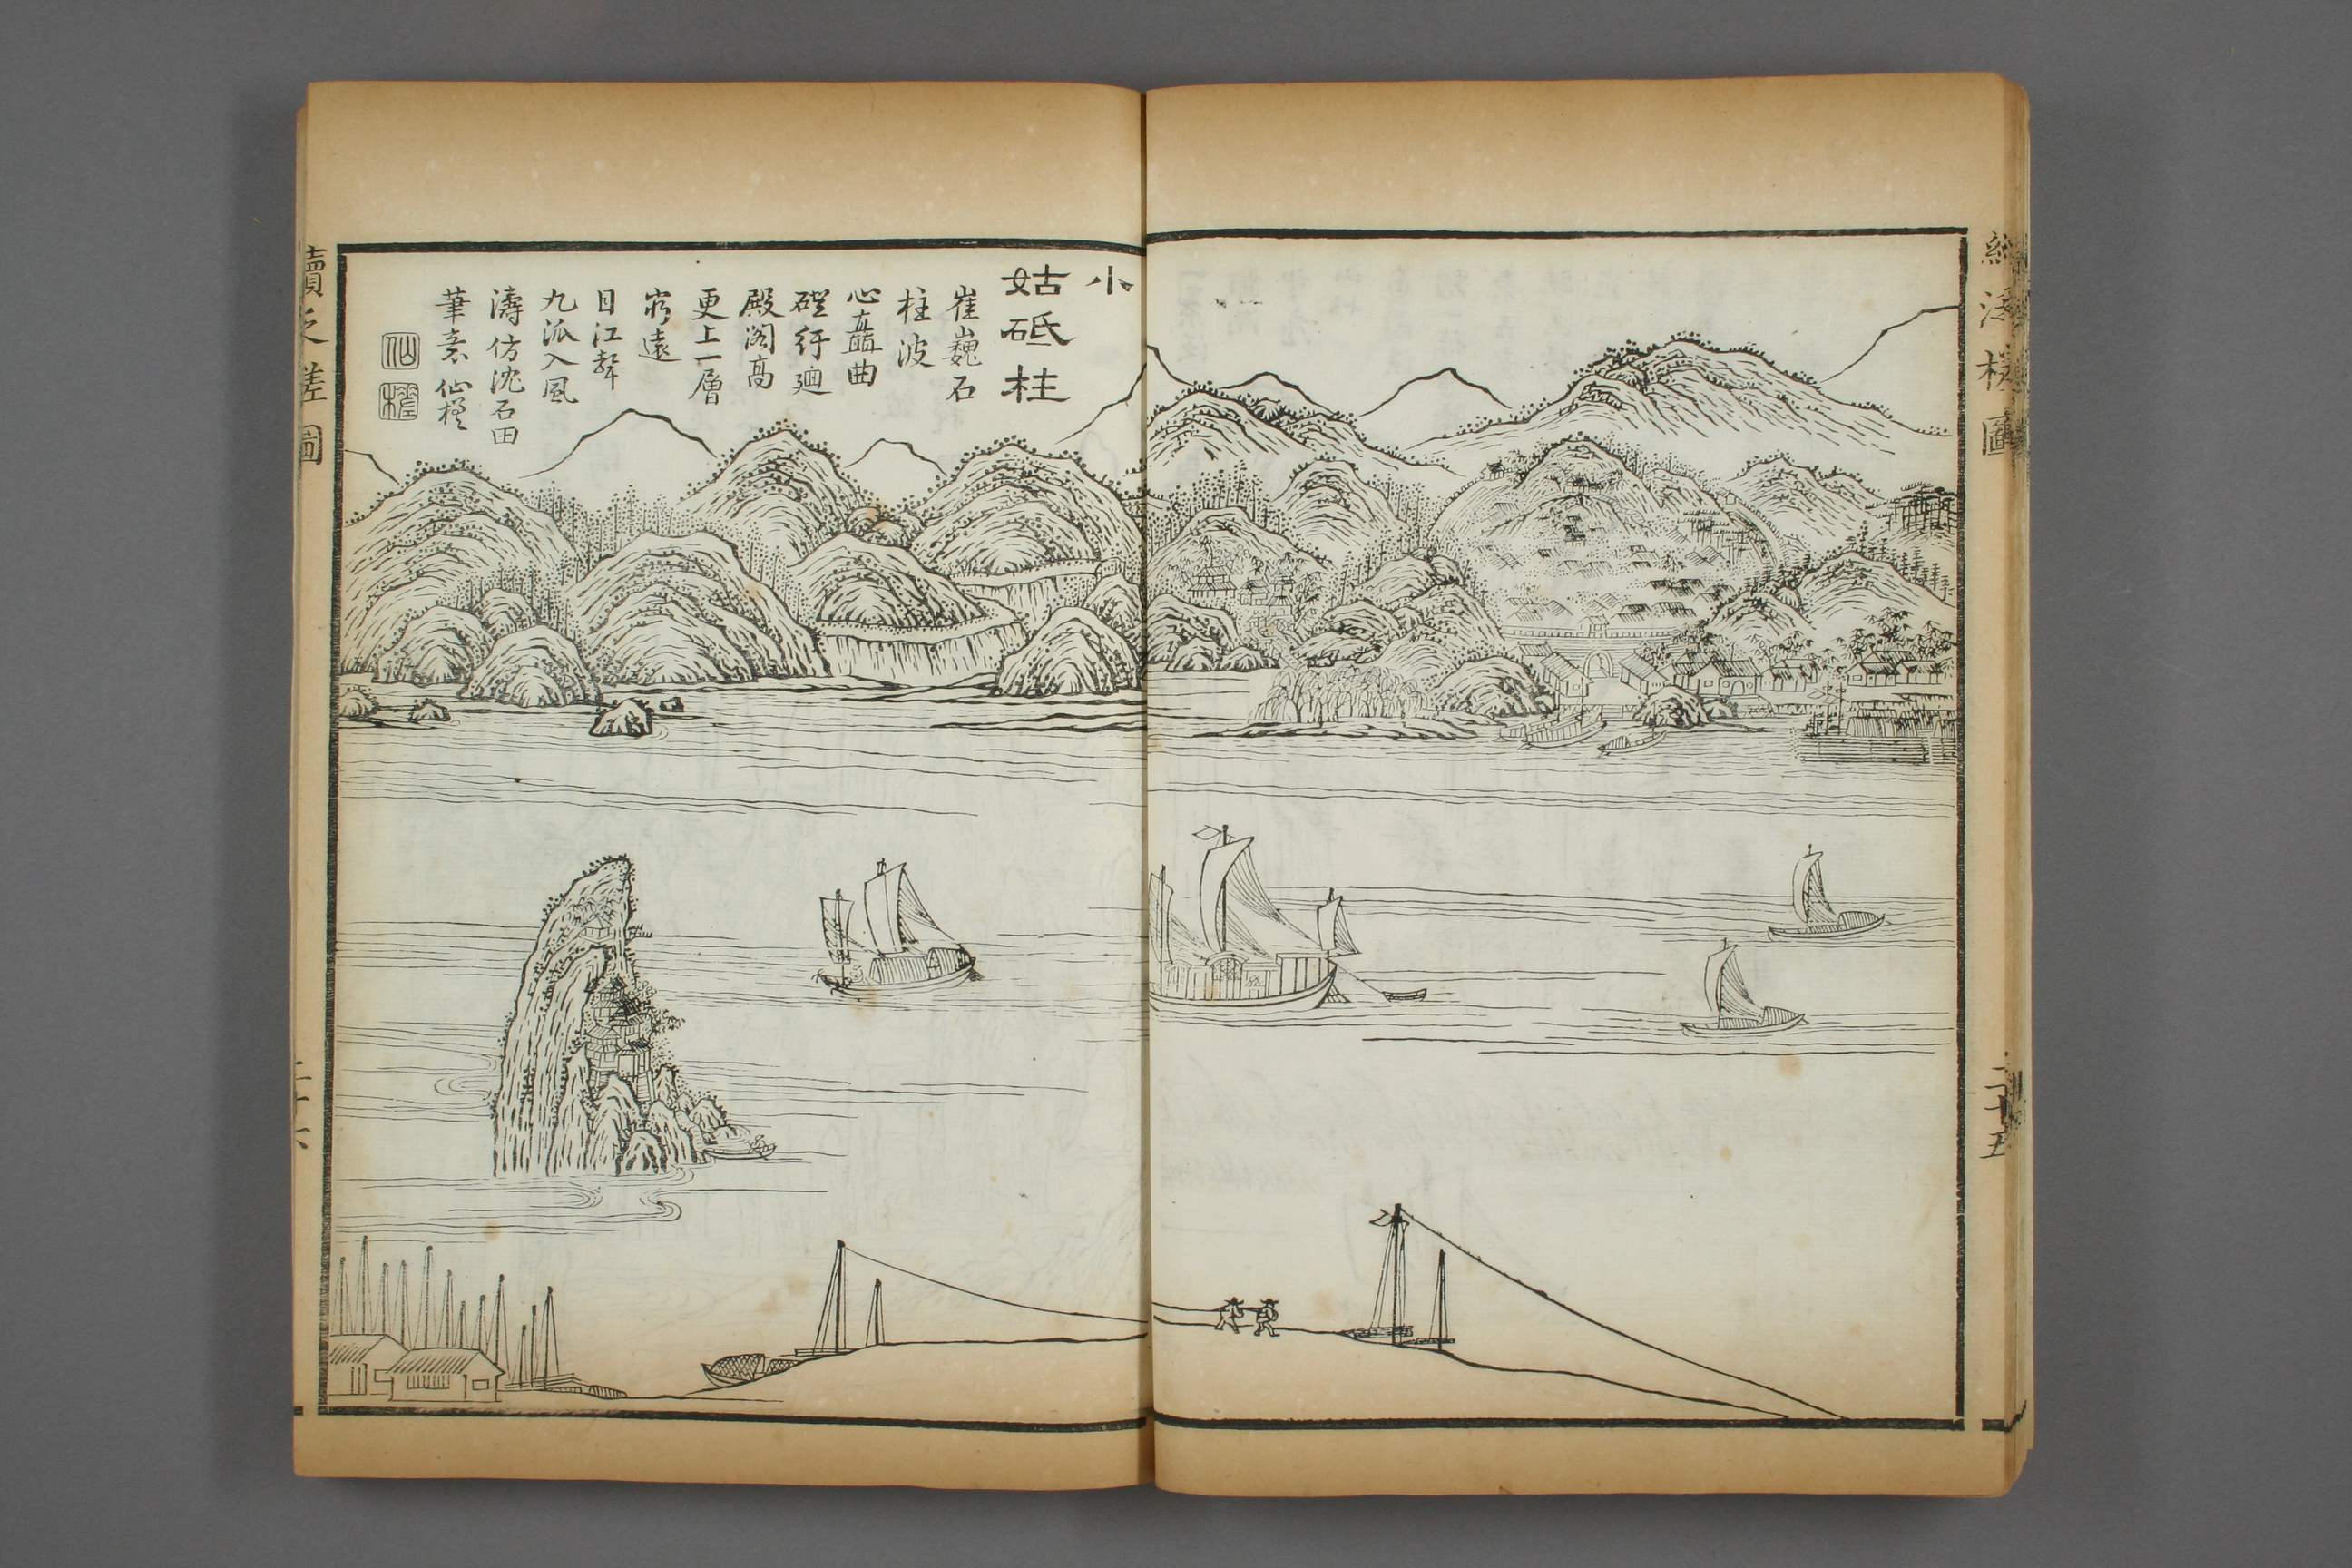 續泛槎圖
二十五
小
姑砥柱
崔巍石
柱波
心矗曲
磴行廻
殿閣高
更上一層
窮遠
目江聲
九派入風
濤仿沈石田
筆意仙槎
仙
槎
續泛槎圖
二十六